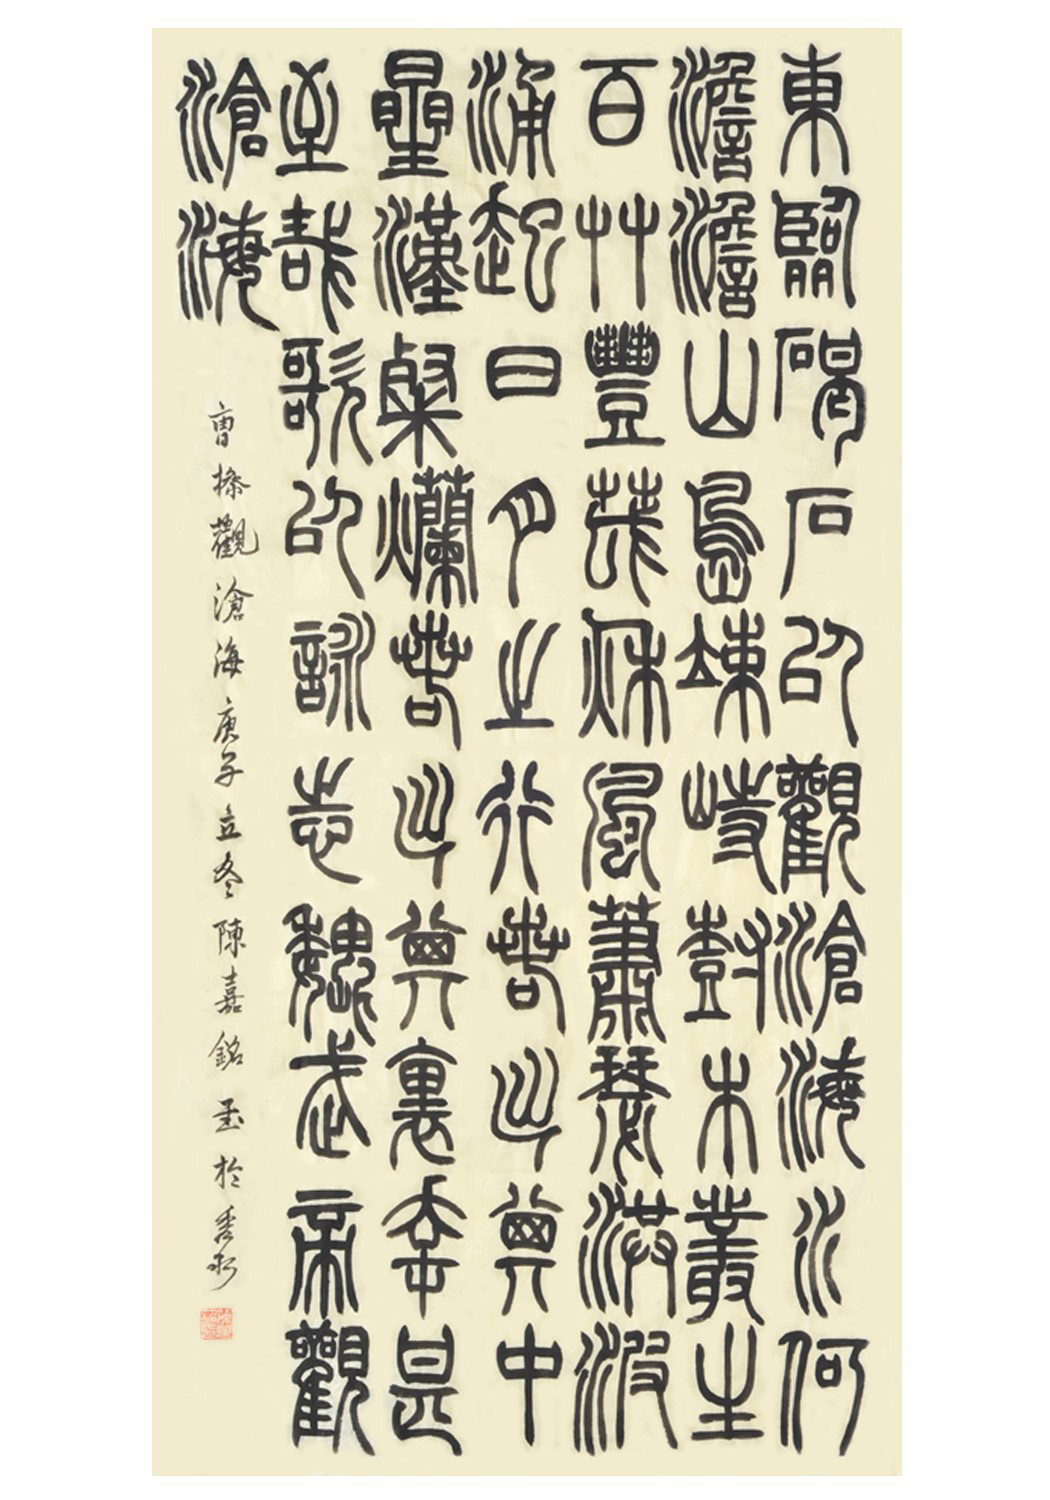 東臨碣石以觀滄海水何
澹澹山島竦峙樹木叢生
百艸豐茂秋風蕭瑟洪波
涌起日月之行若出其中
星漢粲爛若出其裏幸甚
至哉歌以詠志魏武帝觀
滄海
曹操觀滄海庚子立冬陳嘉銘書於